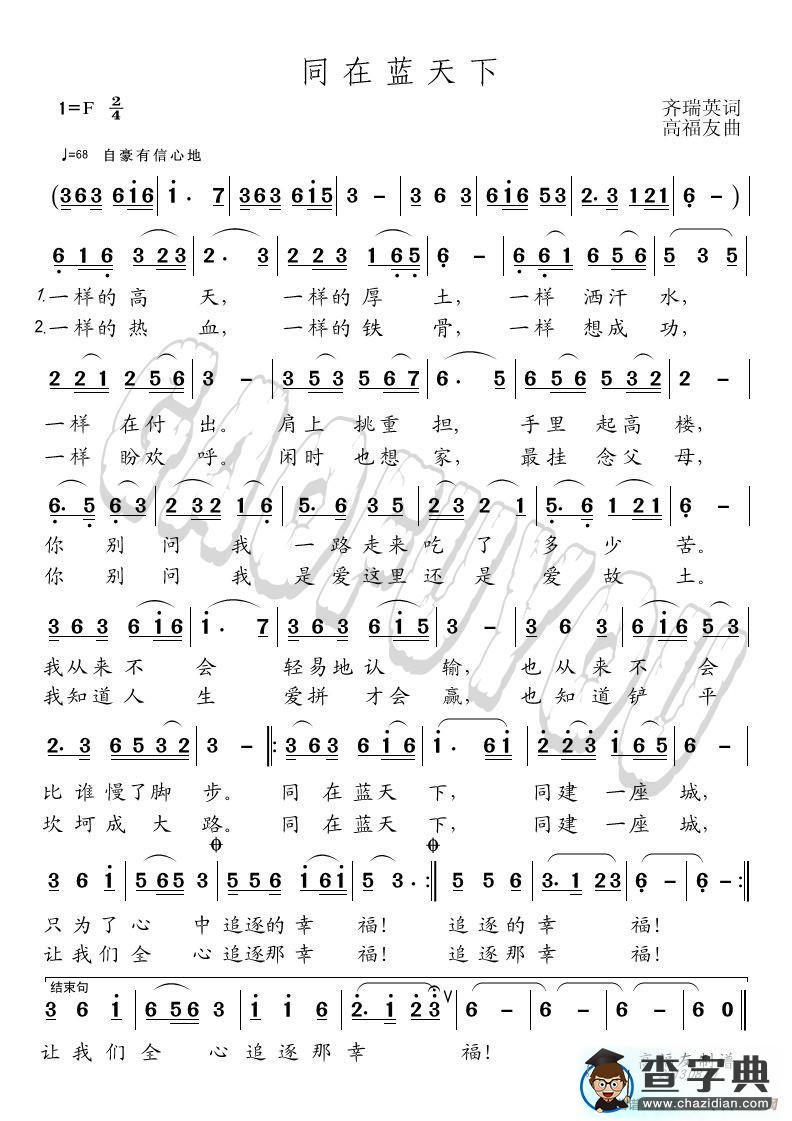 同在蓝天下
1=F 2/4
齐瑞英词
高福友曲
♩=68 自豪有信心地
(363 6i6 | i. 7 | 363 6i5 | 3 - | 3 6 3 | 6i6 53 | 2.3 121 | 6 - )
6 1 6 3 23 | 2. 3 | 2 2 3 1 65 | 6 - | 6 61 6 56 | 5 3 5
1.一样的高 天, 一样的厚 土, 一样 洒汗 水,
2.一样的热 血, 一样的铁 骨, 一样 想成 功,
2 21 2 56 | 3 - | 3 53 5 67 | 6. 5 | 6 56 5 32 | 2 -
一样 在付 出。 肩上 挑重 担, 手里 起高 楼,
一样 盼欢 呼。 闲时 也想 家, 最挂 念父 母,
6. 5 6 3 | 232 1 6 | 5. 6 3 5 | 2 3 2 1 | 5. 6 121 | 6 -
你别问 我 一路走来吃了多少苦。
你别问 我 是爱这里还是爱故土。
3 6 3 6 i6 | i. 7 | 3 6 3 6 i5 | 3 - | 3 6 3 | 6 i6 5 3
我从来不 会 轻易地认 输, 也从来不 会
我知道人 生 爱拼才会 赢, 也知道铲 平
2. 3 65 32 | 3 - ‖: 3 63 6 i6 | i. 6i | 2 23 i 65 | 6 -
比谁慢了脚 步。 同 在蓝天 下, 同建 一座 城,
坎坷成大 路。 同 在蓝天 下, 同建 一座 城,
3 6 i | 5 65 3 | 5 5 6 i 6i | 5 3. :‖ 5 5 6 | 3. 1 23 | 6 - | 6 - :‖
只为了心 中追逐的幸 福! 追逐的幸 福!
让我们全 心追逐那幸 福! 追逐那幸 福!
结束句
3 6 i | 6 56 3 | i i 6 | 2. i 2 3 ∨ | 6 - | 6 - | 6 - | 6 0 ‖
让我们全 心追逐那幸 福!
GAOFUYOU
查字典
www.chazidian.com